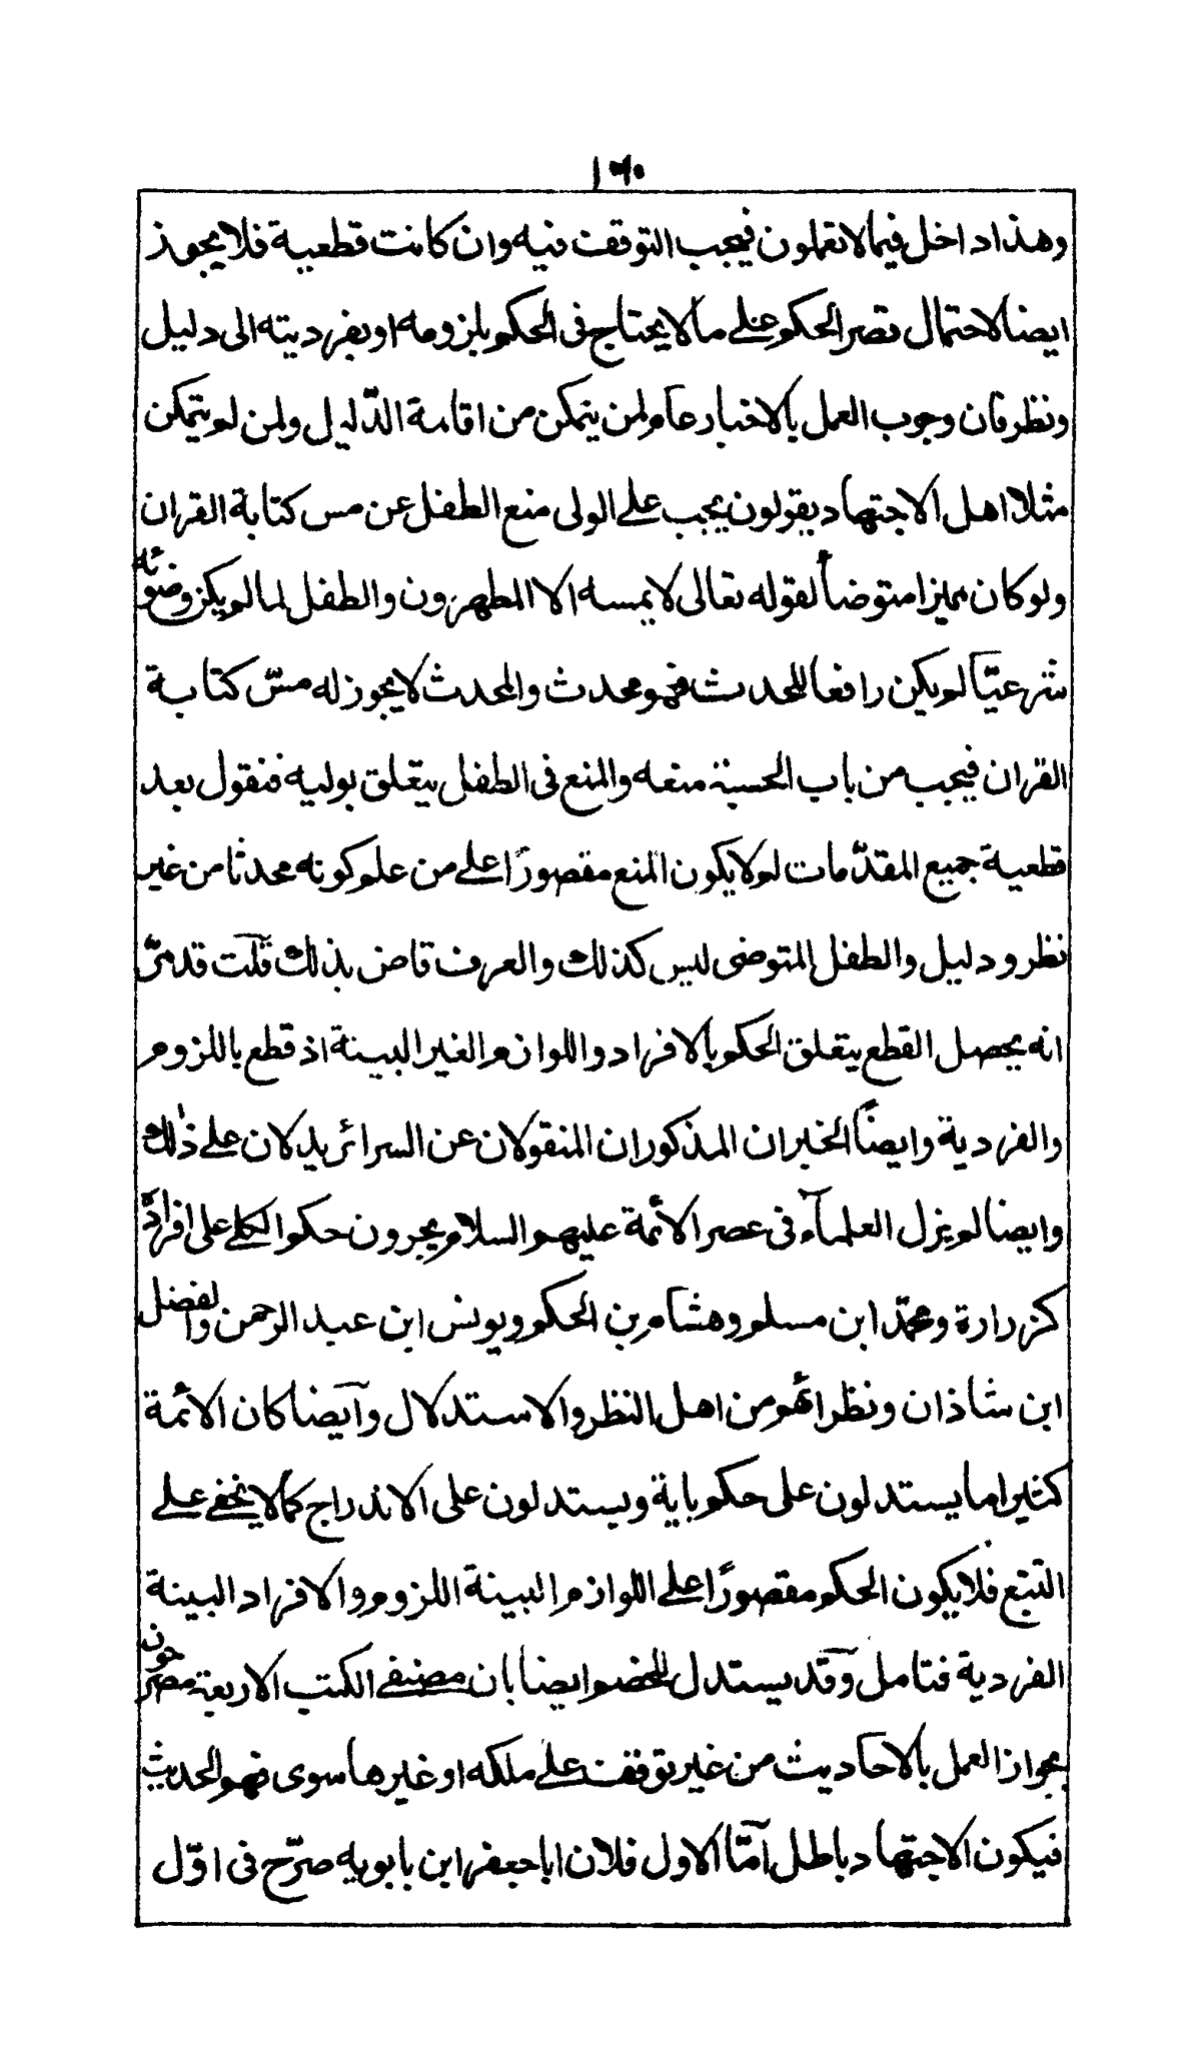 وهذا داخل فيما لا تعلمون فيجب التوقف فيه وان كانت قطعية فلا يجوز
ايضا لاحتمال قصر الحكم علے ما لا يحتاج فى الحكم بلزومه او بفرديته الى دليل
ونظر فان وجوب العمل بالاخبار عام لمن يتمكن من اقامة الدّليل ولمن لم يتمكن
مثلا اهل الاجتهاد يقولون يجب علے الولى منع الطفل عن مس كتابة القران
ولو كان مميزا متوضأ لقوله تعالى لا يمسه الا المطهرون والطفل لما لم يكن وضوئه
شرعيّا لم يكن رافعا للحدث فهو محدث والمحدث لا يجوز له مسّ كتابة
القران فيجب من باب الحسبة منعه والمنع فى الطفل يتعلق بوليه فنقول بعد
قطعية جميع المقدّمات لم لا يكون المنع مقصورًا علے من علم كونه محدثا من غير
نظر ودليل والطفل المتوضى ليس كذلك والعرف قاض بذلك قلت قد مرّ
انه يحصل القطع بتعلق الحكم بالافراد واللوازم الغير البينة اذ قطع باللزوم
والفردية وايضًا الخبران المذكوران المنقولان عن السرائر يدلان علے ذلك
وايضا لم يزل العلمآء فى عصر الأئمة عليهم السلام يجرون حكم الكلے على افراده
كزرارة ومحمّد ابن مسلم وهشام بن الحكم ويونس ابن عبد الرحمن والفضل
ابن شاذان ونظرائهم من اهل النظر والاستدلال وآيضا كان الأئمة
كثيرا ما يستدلون على حكم باية ويستدلون على الاندراج كما لا يخفے علے
التتبع فلا يكون الحكم مقصورًا علے اللوازم البينة اللزوم والافراد البينة
الفردية فتامل وقد يستدل للخصم ايضا بان مصنفے الكتب الاربعة مصرحون
بجواز العمل بالاحاديث من غير توقف علے ملكه او غيرها سوى فهم الحديث
فيكون الاجتهاد باطل آمّا الاول فلان ابا جعفر ابن بابويه صرّح فى اوّل